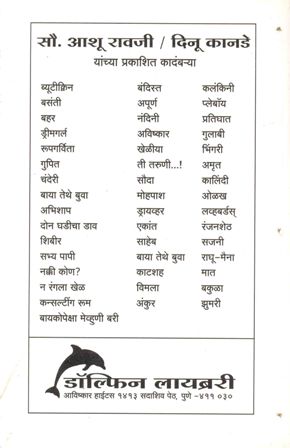 सौ. आशू रावजी / दिनू कानडे
यांच्या प्रकाशित कादंबऱ्या
ब्यूटीक्विन
बसंती
बहर
ड्रीमगर्ल
रूपगर्विता
गुपित
चंदेरी
बाया तेथे बुवा
अभिशाप
दोन घडीचा डाव
शिबीर
सभ्य पापी
नक्की कोण?
न रंगला खेळ
कन्सल्टींग रूम
बायकोपेक्षा मेव्हुणी बरी
बंदिस्त
अपूर्ण
नंदिनी
अविष्कार
खेळीया
ती तरुणी...!
सौदा
मोहपाश
ड्रायव्हर
एकांत
साहेब
बाया तेथे बुवा
काटशह
विमला
अंकुर
कलंकिनी
प्लेबॉय
प्रतिघात
गुलाबी
भिंगरी
अमृत
कालिंदी
ओळख
लव्हबर्डस्
रंजनशेठ
सजनी
राघू-मैना
मात
बकुळा
झुमरी
डॉल्फिन लायब्ररी
आविष्कार हाईटस १४१३ सदाशिव पेठ, पुणे -४११ ०३०